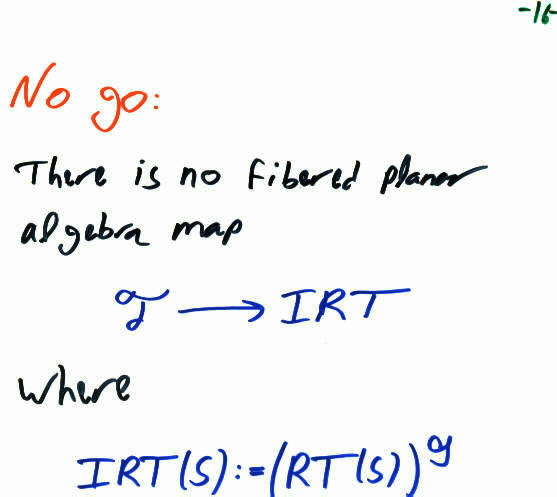 -16-
No go:
There is no fibered planar
algebra map
𝒯 → IRT
where
IRT(S):=(RT(S))^𝔤